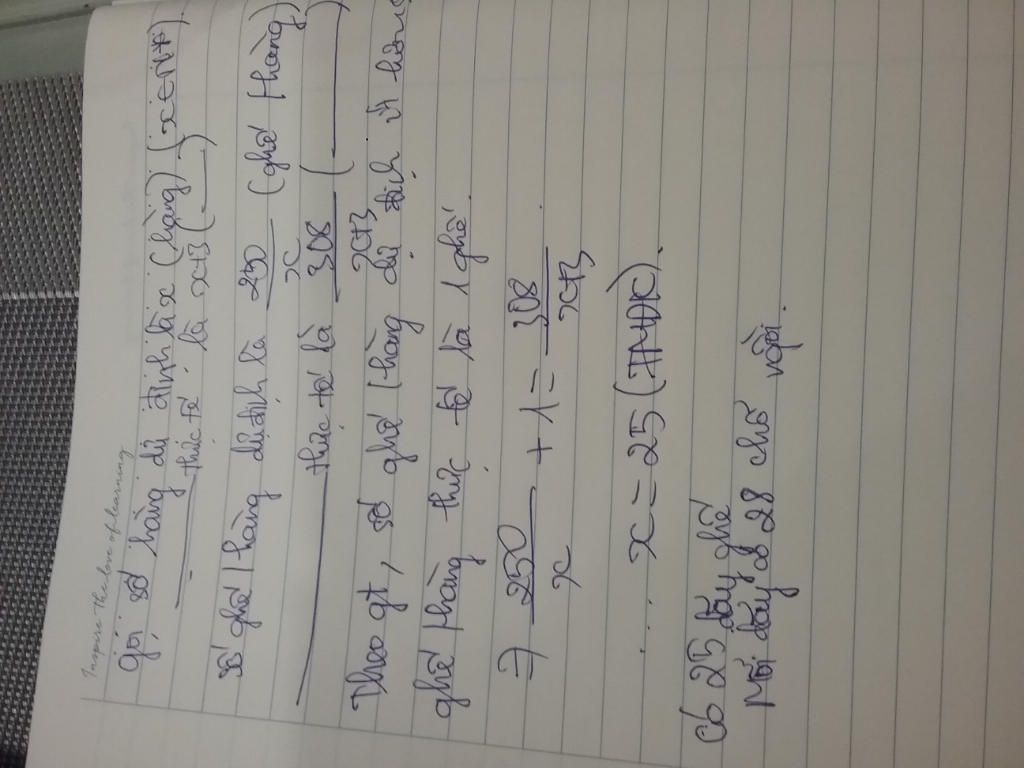 Inspire the love of learning
gọi số hàng dự định là x (hàng) (x ∈ N*)
——— thực tế là x+3 (——)
số ghế / hàng dự định là 250/x (ghế / hàng)
——— thực tế là 308/x+3 (———)
Theo gt, số ghế / hàng dự định ít hơn
ghế / hàng thực tế là 1 ghế.
=> 250/x + 1 = 308/x+3
x = 25 (TMĐK).
Có 25 dãy ghế
Mỗi dãy có 28 chỗ ngồi.